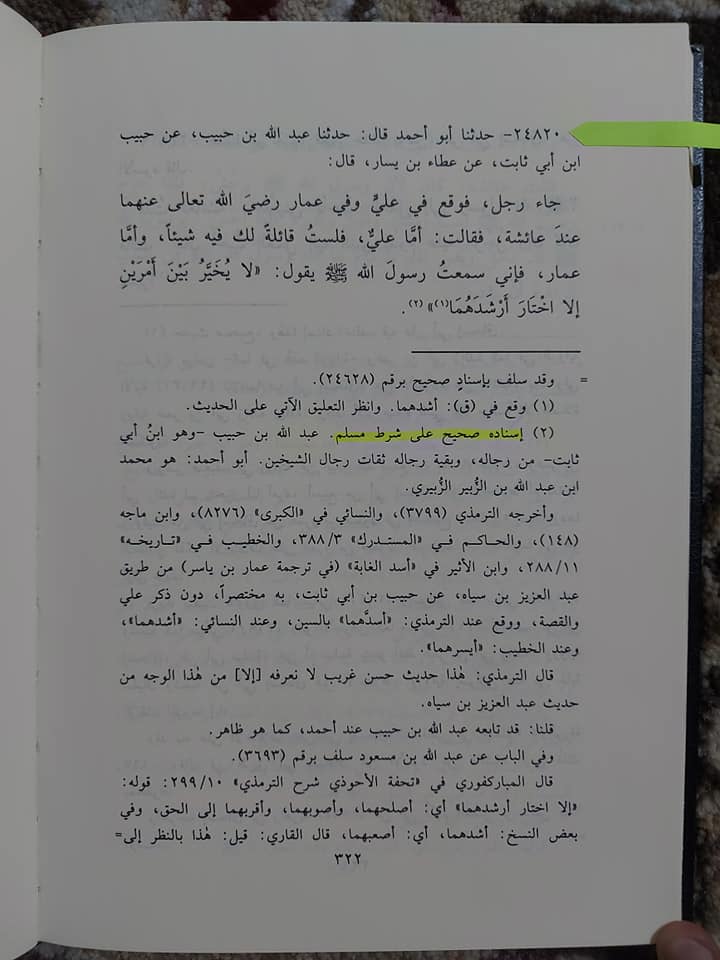 ٢٤٨٢٠- حدثنا أبو أحمد قال: حدثنا عبد الله بن حبيب، عن حبيب
ابن أبي ثابت، عن عطاء بن يسار، قال:
جاء رجل، فوقع في عليٍّ وفي عمار رضيَ الله تعالى عنهما
عندَ عائشة، فقالت: أمَّا عليٌّ، فلستُ قائلةً لك فيه شيئاً، وأمَّا
عمار، فإني سمعتُ رسولَ الله ﷺ يقول: «لا يُخَيَّرُ بَيْنَ أَمْرَيْنِ
إلا اخْتَارَ أَرْشَدَهُمَا(١)» (٢).
= وقد سلف بإسنادٍ صحيح برقم (٢٤٦٢٨).
(١) وقع في (ق): أشدهما. وانظر التعليق الآتي على الحديث.
(٢) إسناده صحيح على شرط مسلم. عبد الله بن حبيب -وهو ابنُ أبي
ثابت- من رجاله، وبقية رجاله ثقات رجال الشيخين. أبو أحمد: هو محمد
ابن عبد الله بن الزُّبير الزُّبيري.
وأخرجه الترمذي (٣٧٩٩)، والنسائي في «الكبرى» (٨٢٧٦)، وابن ماجه
(١٤٨)، والحاكم في «المستدرك» ٣٨٨/٣، والخطيب في «تاريخه»
٢٨٨/١١، وابن الأثير في «أسد الغابة» (في ترجمة عمار بن ياسر) من طريق
عبد العزيز بن سياه، عن حبيب بن أبي ثابت، به مختصراً، دون ذكر علي
والقصة، ووقع عند الترمذي: «أسدَّهما» بالسين، وعند النسائي: «أشدهما»،
وعند الخطيب: «أيسرهما».
قال الترمذي: هٰذا حديث حسن غريب لا نعرفه [إلا] من هٰذا الوجه من
حديث عبد العزيز بن سياه.
قلنا: قد تابعه عبد الله بن حبيب عند أحمد، كما هو ظاهر.
وفي الباب عن عبد الله بن مسعود سلف برقم (٣٦٩٣).
قال المباركفوري في «تحفة الأحوذي شرح الترمذي» ٢٩٩/١٠: قوله:
«إلا اختار أرشدهما» أي: أصلحهما، وأصوبهما، وأقربهما إلى الحق، وفي
بعض النسخ: أشدهما، أي: أصعبهما، قال القاري: قيل: هٰذا بالنظر إلى=
٣٢٢